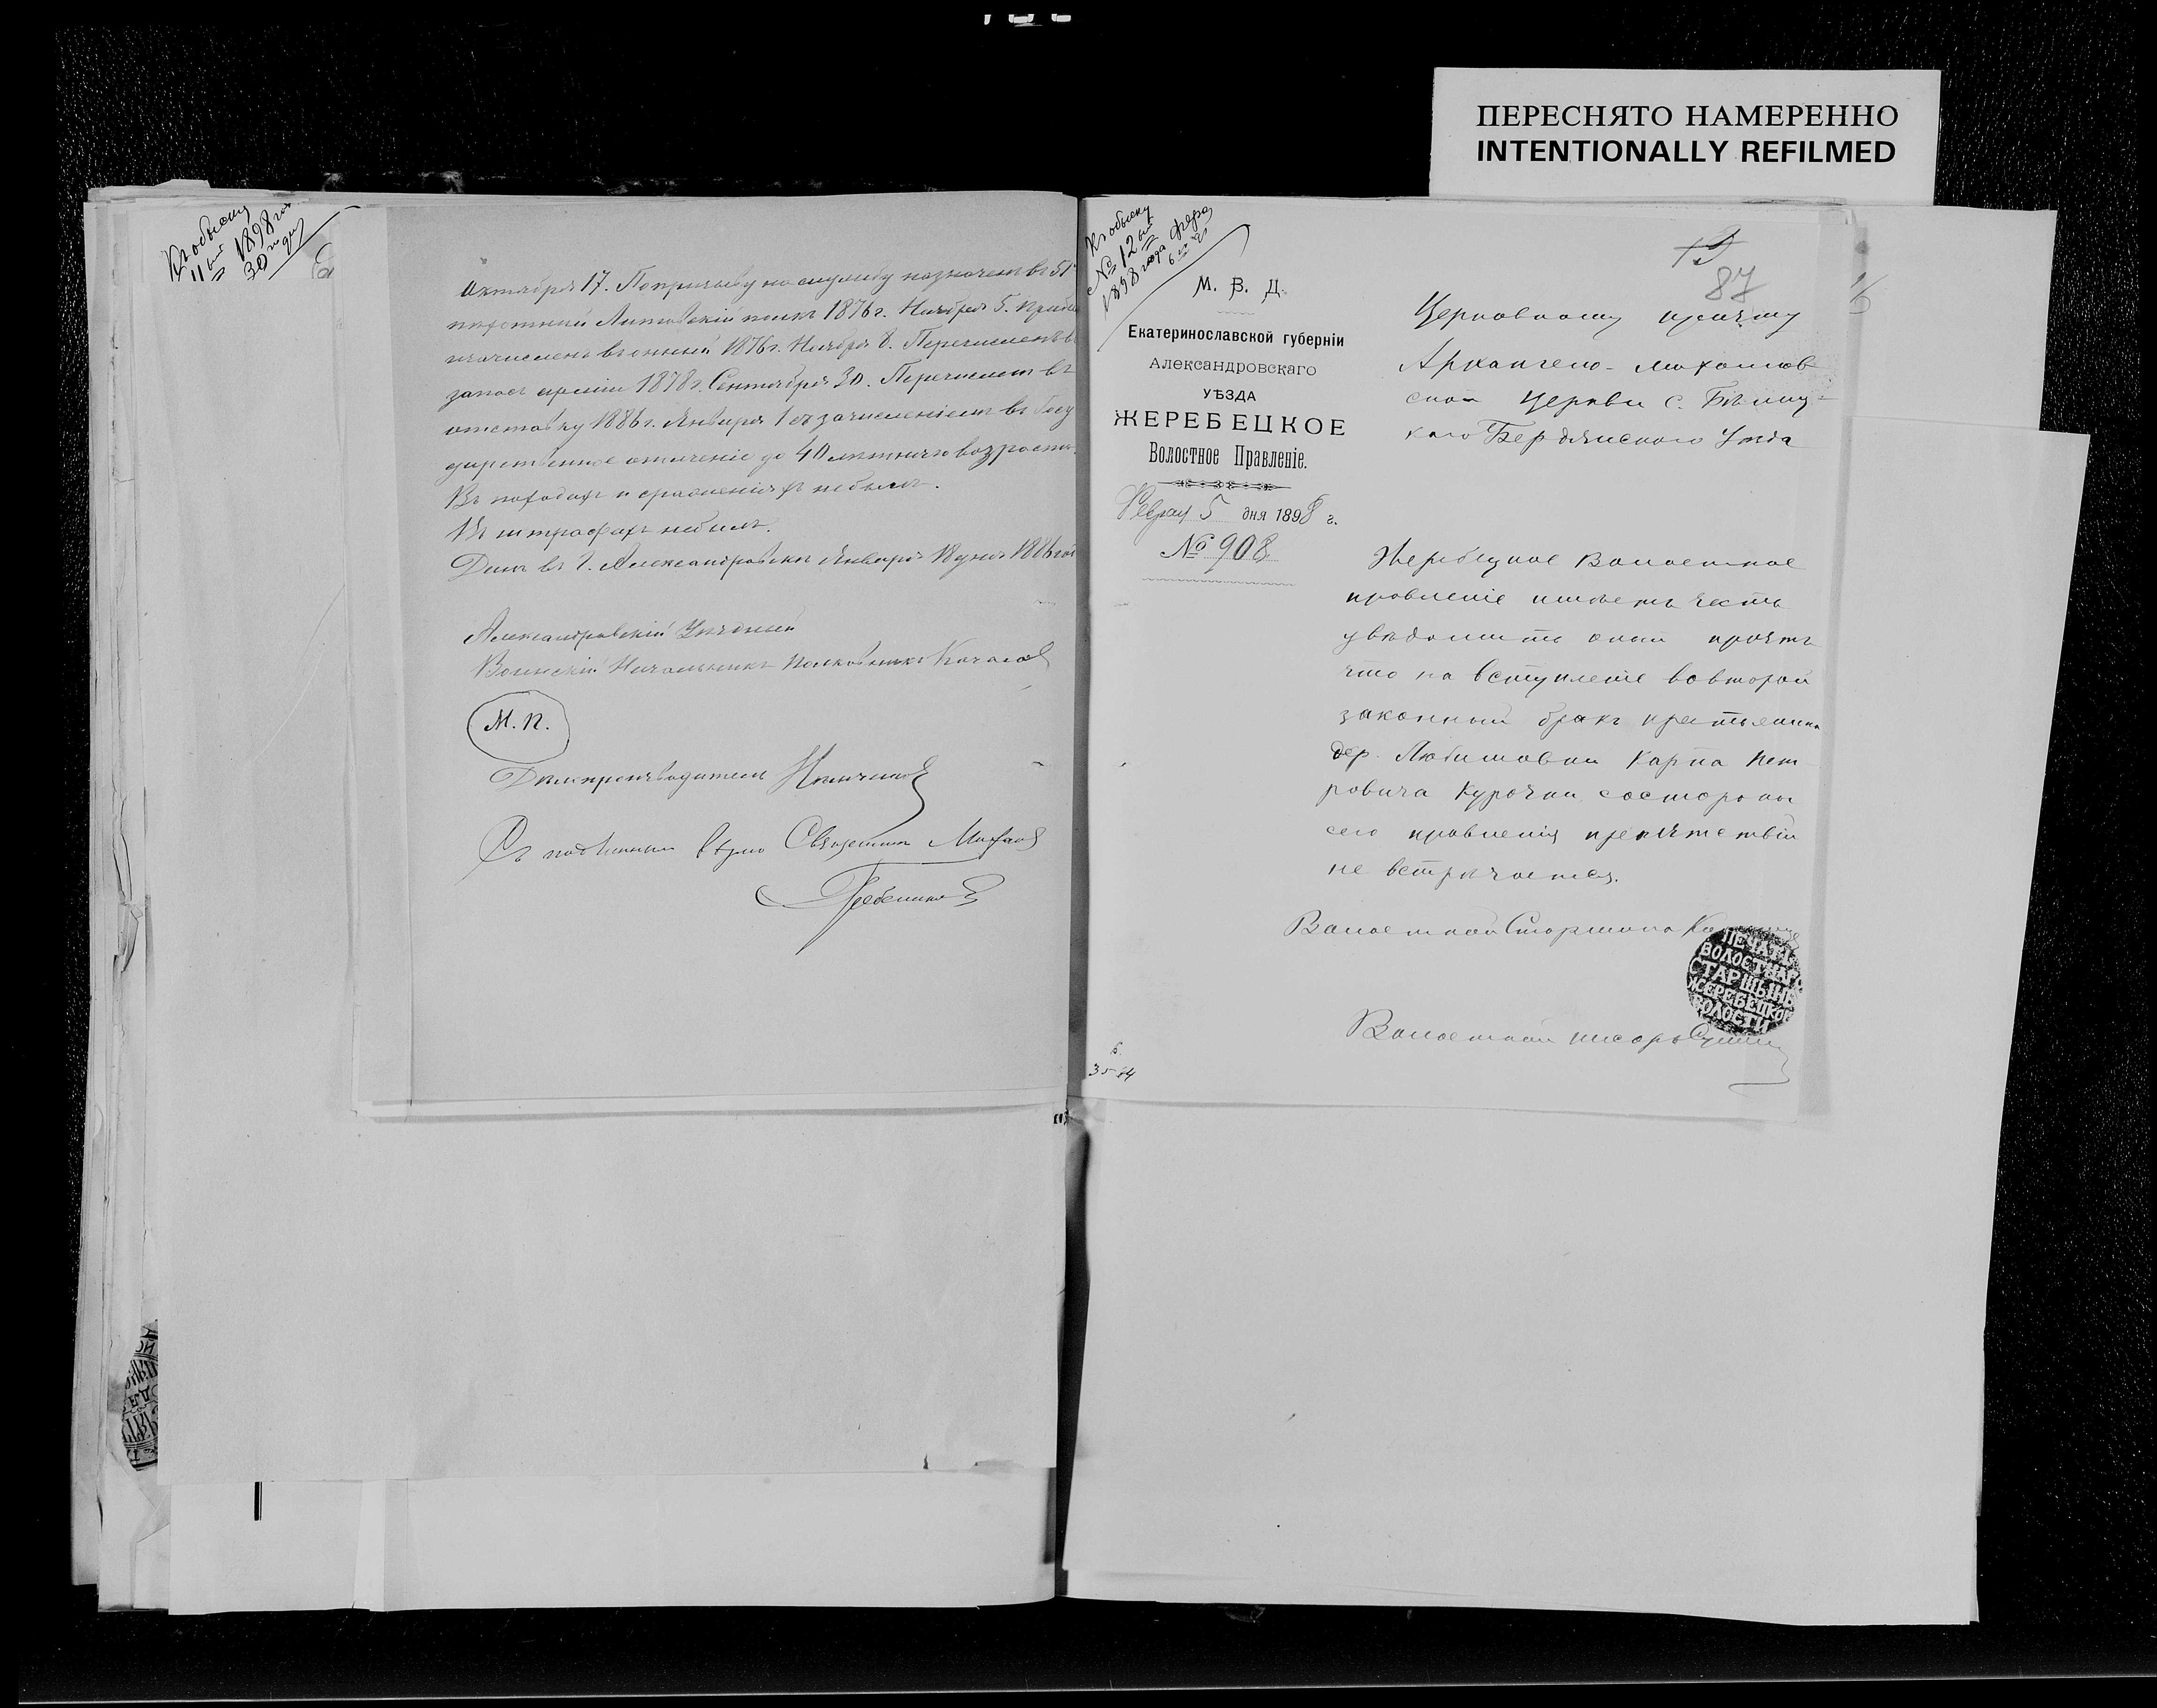 ПЕРЕСНЯТО НАМЕРЕННО
INTENTIONALLY REFILMED
Къ обыску
11ый 1898 год
30 дня
Октября 17. По призыву на службу назначенъ въ 51й
пехотный Литовскій полкъ 1876 г. Ноября 5. Прибылъ
и зачисленъ въ оный 1876 г. Ноября 8. Перечисленъ въ
запасъ арміи 1878 г. Сентября 30. Перечисленъ въ
отставку 1886 г. Января 1 съ зачисленіемъ въ Госу
дарственное ополченіе до 40 лѣтняго возраста.
Въ походахъ и сраженіяхъ небылъ.
Въ штрафахъ небылъ.
Данъ въ г. Александровскѣ Января 18 дня 1886 год
Александровскій Уѣздный
Воинскій Начальникъ Полковникъ
М. П.
Дѣлопроизводитель
Съ подлиннымъ вѣрно Священникъ Михаилъ
Гребенников
Къ обыску
№ 12ый
1898 года февр
6
19
87
М. В. Д.
Екатеринославской губерніи
Александровскаго
УѢЗДА
ЖЕРЕБЕЦКОЕ
Волостное Правленіе.
Феврал 5 дня 1898 г.
№ 908
Церковному причту
Архангело-Михаилов
ской церкви с. Бѣлиц-
каго Бердянскаго Уѣзда
Жеребецкое Волостное
правленіе имѣетъ честь
увѣдомить оный причтъ
что на вступленіе во второй
законный бракъ крестьянина
дер. Любимовки Карпа Пет
ровича Курочки состороны
сего правленія препятствій
не встрѣчается.
Волостной Старшина
ПЕЧАТЬ
ВОЛОСТНАГ
СТАРШЫНЫ
ЖЕРЕБЕЦКОЙ
ВОЛОСТИ
Волостной писарь